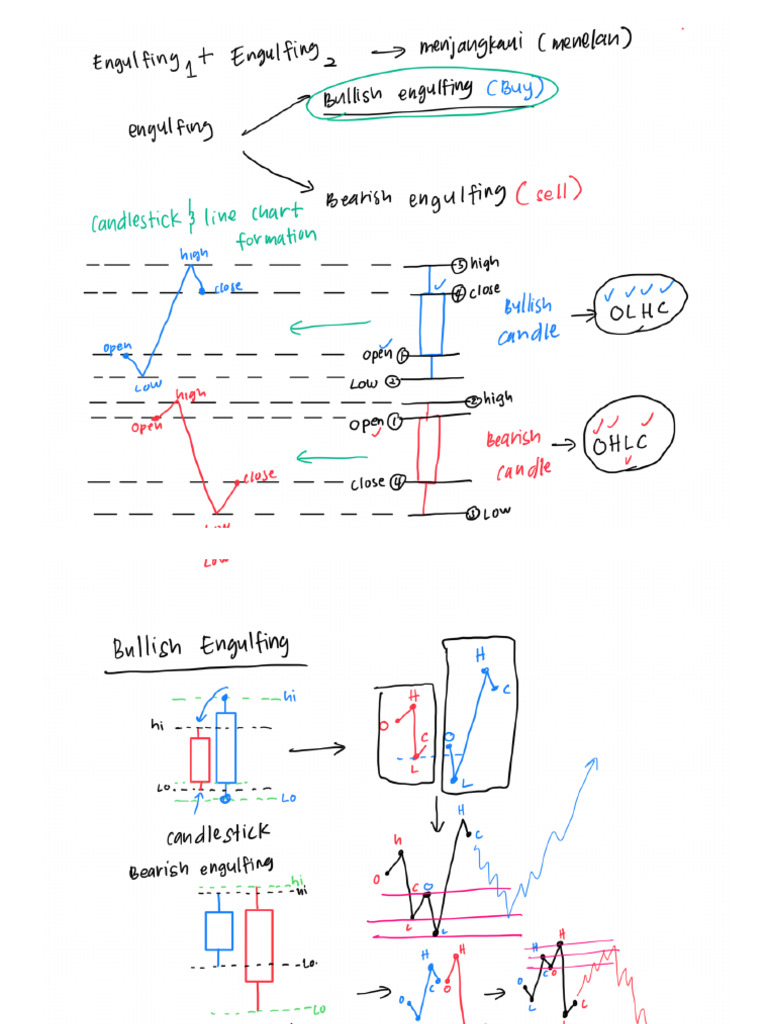 Engulfing 1 + Engulfing 2 → menjangkaui (menelan)
Bullish engulfing (Buy)
engulfing
Bearish engulfing (sell)
Candlestick & line chart
formation
high
close
open
Low
③ high
④ close
open ①
Low ②
Bullish
candle
OLHC
high
open
close
Low
② high
open ①
close ④
③ Low
Bearish
candle
OHLC
Low
Bullish Engulfing
hi
hi
Lo
Lo
H
O
C
L
H
C
O
L
Candlestick
H
C
H
O
C
O
L
L
Bearish engulfing
hi
hi
Lo
Lo
H
H
O
C
O
H
H
C
O
O
L
L